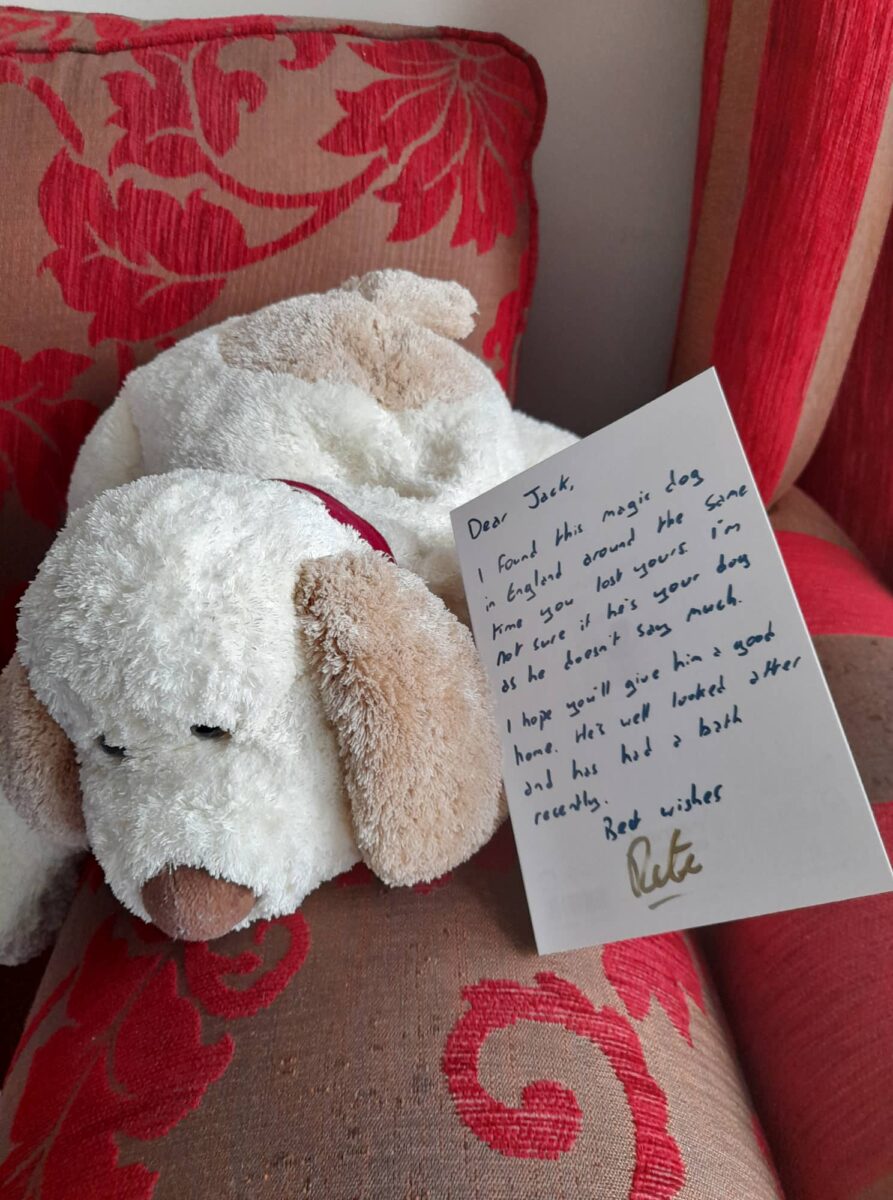 Dear Jack,
I found this magic dog
in England around the same
time you lost yours. I'm
not sure if he's your dog
as he doesn't say much.
I hope you'll give him a good
home. He's well looked after
and has had a bath
recently.
Best wishes
Rita